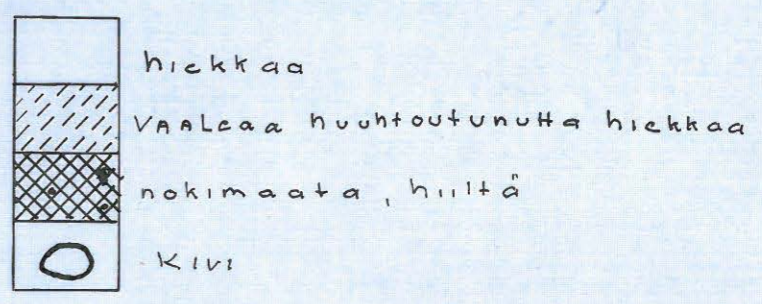 hiekkaa
VAALeaa huuhtoutunutta hiekkaa
nokimaata, hiiltä
Kivi